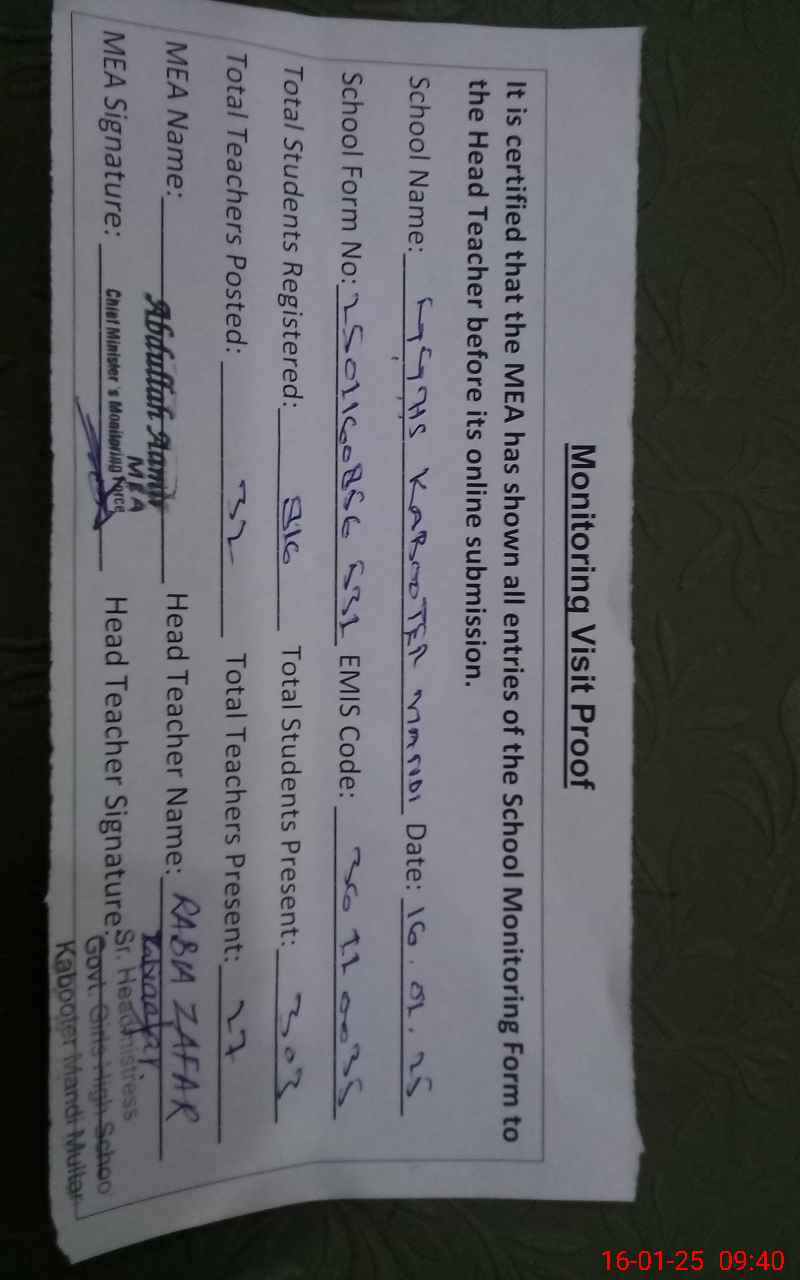 Monitoring Visit Proof
It is certified that the MEA has shown all entries of the School Monitoring Form to
the Head Teacher before its online submission.
School Name: GGHS KABOOTER MANDI Date: 16.01.25
School Form No: EMIS Code: 36110035
Total Students Registered: 816 Total Students Present: 303
Total Teachers Posted: 32 Total Teachers Present: 27
MEA Name: Abdullah Aamir Head Teacher Name: RABIA ZAFAR
MEA
MEA Signature: Chief Minister's Monitoring Force Head Teacher Signature:
Sr. Headmistress
Govt. Girls High Schoo
Kabooter Mandi Multan
16-01-25 09:40